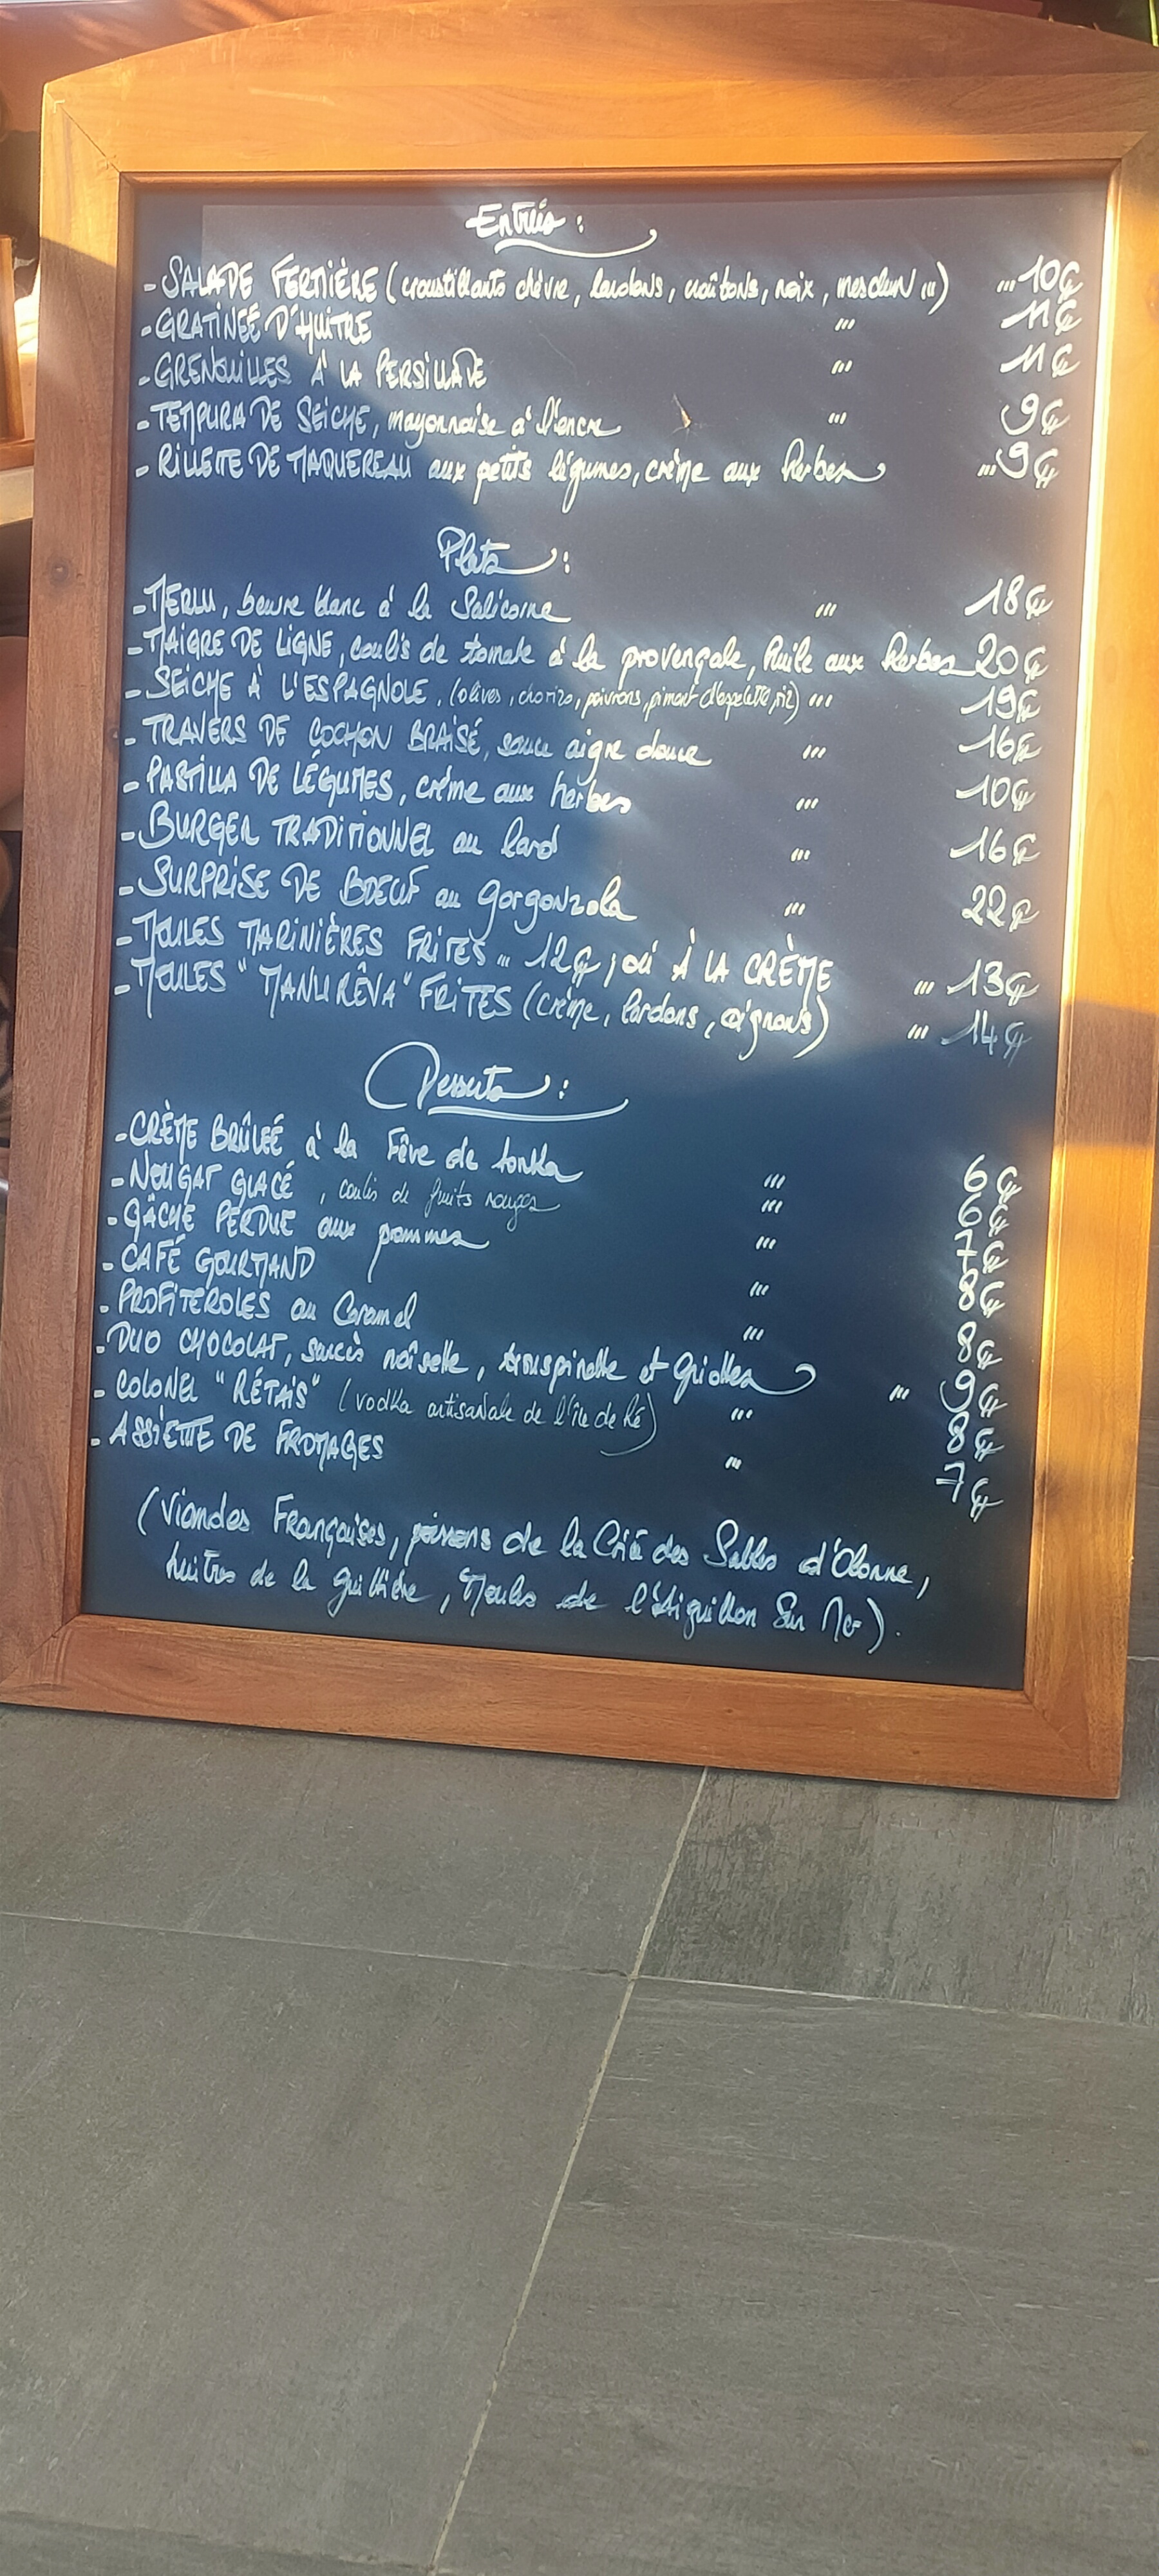 Entrées :
- SALADE FERMIÈRE ( croustillants chèvre, lardons, croûtons, noix, mesclun ...) ... 10€
- GRATINÉE D'HUITRE ... 11€
- GRENOUILLES À LA PERSILLADE ... 11€
- TEMPURA DE SEICHE, mayonnaise à l'encre ... 9€
- RILLETTE DE MAQUEREAU aux petits légumes, crème aux herbes ... 9€
Plats :
- MERLU, beurre blanc à la Salicorne ... 18€
- MAIGRE DE LIGNE, coulis de tomate à la provençale, huile aux herbes 20€
- SEICHE À L'ESPAGNOLE, (olives, chorizo, poivrons, piment d'espelette, riz) ... 19€
- TRAVERS DE COCHON BRAISÉ, sauce aigre douce ... 16€
- PASTILLA DE LÉGUMES, crème aux herbes ... 10€
- BURGER TRADITIONNEL au lard ... 16€
- SURPRISE DE BOEUF au gorgonzola ... 22€
- MOULES MARINIÈRES FRITES ... 12€ ; où À LA CRÈME ... 13€
- MOULES "MANURÊVA" FRITES (crème, lardons, oignons) ... 14€
Desserts :
- CRÈME BRÛLEÉ à la Fêve de tonka ... 6€
- NOUGAT GLACÉ, coulis de fruits rouges ... 6€
- GÂCHE PERDUE aux pommes ... 7€
- CAFÉ GOURMAND ... 8€
- PROFITEROLES au Caramel ... 8€
- DUO CHOCOLAT, succès noisette, trouspinette et griottes ... 9€
- COLONEL "RÉTAIS" (vodka artisanale de l'île de Ré) ... 8€
- ASSIETTE DE FROMAGES ... 7€
(Viandes Françaises, poissons de la Criée des Sables d'Olonne,
huitres de la Guittière, Moules de l'Aiguillon Sur Mer).